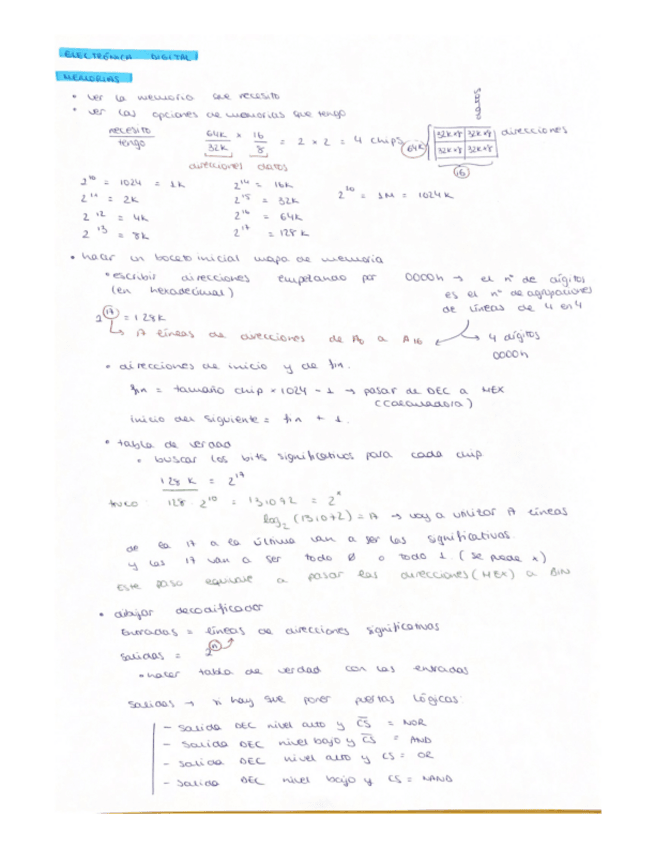 ELECTRÓNICA DIGITAL
MEMORIAS
• ver la memoria que necesito
• ver las opciones de memorias que tengo
necesito / tengo   64K / 32K × 16 / 8 = 2 × 2 = 4 chips   64K   32K×8 32K×8   direcciones
32K×8 32K×8
datos
16
direcciones datos
2^10 = 1024 = 1K   2^14 = 16K   2^20 = 1M = 1024K
2^11 = 2K   2^15 = 32K
2^12 = 4K   2^16 = 64K
2^13 = 8K   2^17 = 128K
• hacer un boceto inicial mapa de memoria
• escribir direcciones empezando por 0000h → el nº de dígitos
(en hexadecimal)   es el nº de agrupaciones
de líneas de 4 en 4
2^17 = 128K
↳ 17 líneas de direcciones de A0 a A16   4 dígitos
0000h
• direcciones de inicio y de fin.
fin = tamaño chip × 1024 - 1 → pasar de DEC a HEX
(calculadora)
inicio del siguiente = fin + 1.
• tabla de verdad
• buscar los bits significativos para cada chip
128K = 2^17
truco: 128 · 2^10 = 131072 = 2^x
log2 (131072) = 17 → voy a utilizar 17 líneas
de la 17 a la última van a ser las significativas.
y las 17 van a ser todo 0 o todo 1. (se pone x)
Este paso equivale a pasar las direcciones (HEX) a BIN
• dibujar decodificador
Entradas = líneas de direcciones significativas
salidas = 2^n
• hacer tabla de verdad con las entradas
Salidas → si hay que poner puertas lógicas:
- Salida DEC nivel alto y C̅S̅ = NOR
- Salida DEC nivel bajo y C̅S̅ = AND
- Salida DEC nivel alto y CS = OR
- Salida DEC nivel bajo y CS = NAND